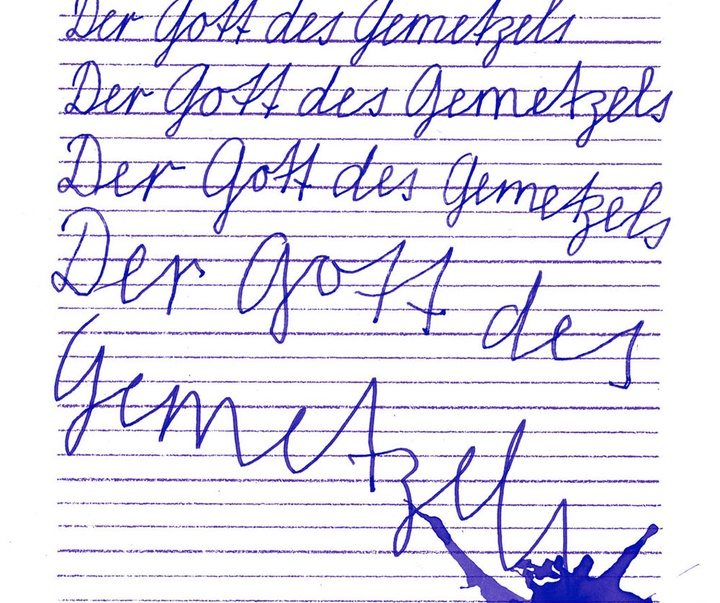 Der Gott des Gemetzels
Der Gott des Gemetzels
Der Gott des Gemetzels
Der Gott des
Gemetzels